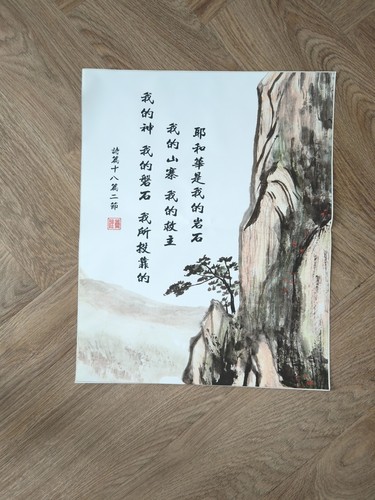 耶和華是我的岩石
我的山寨 我的救主
我的神 我的磐石 我所投靠的
詩篇十八篇二節